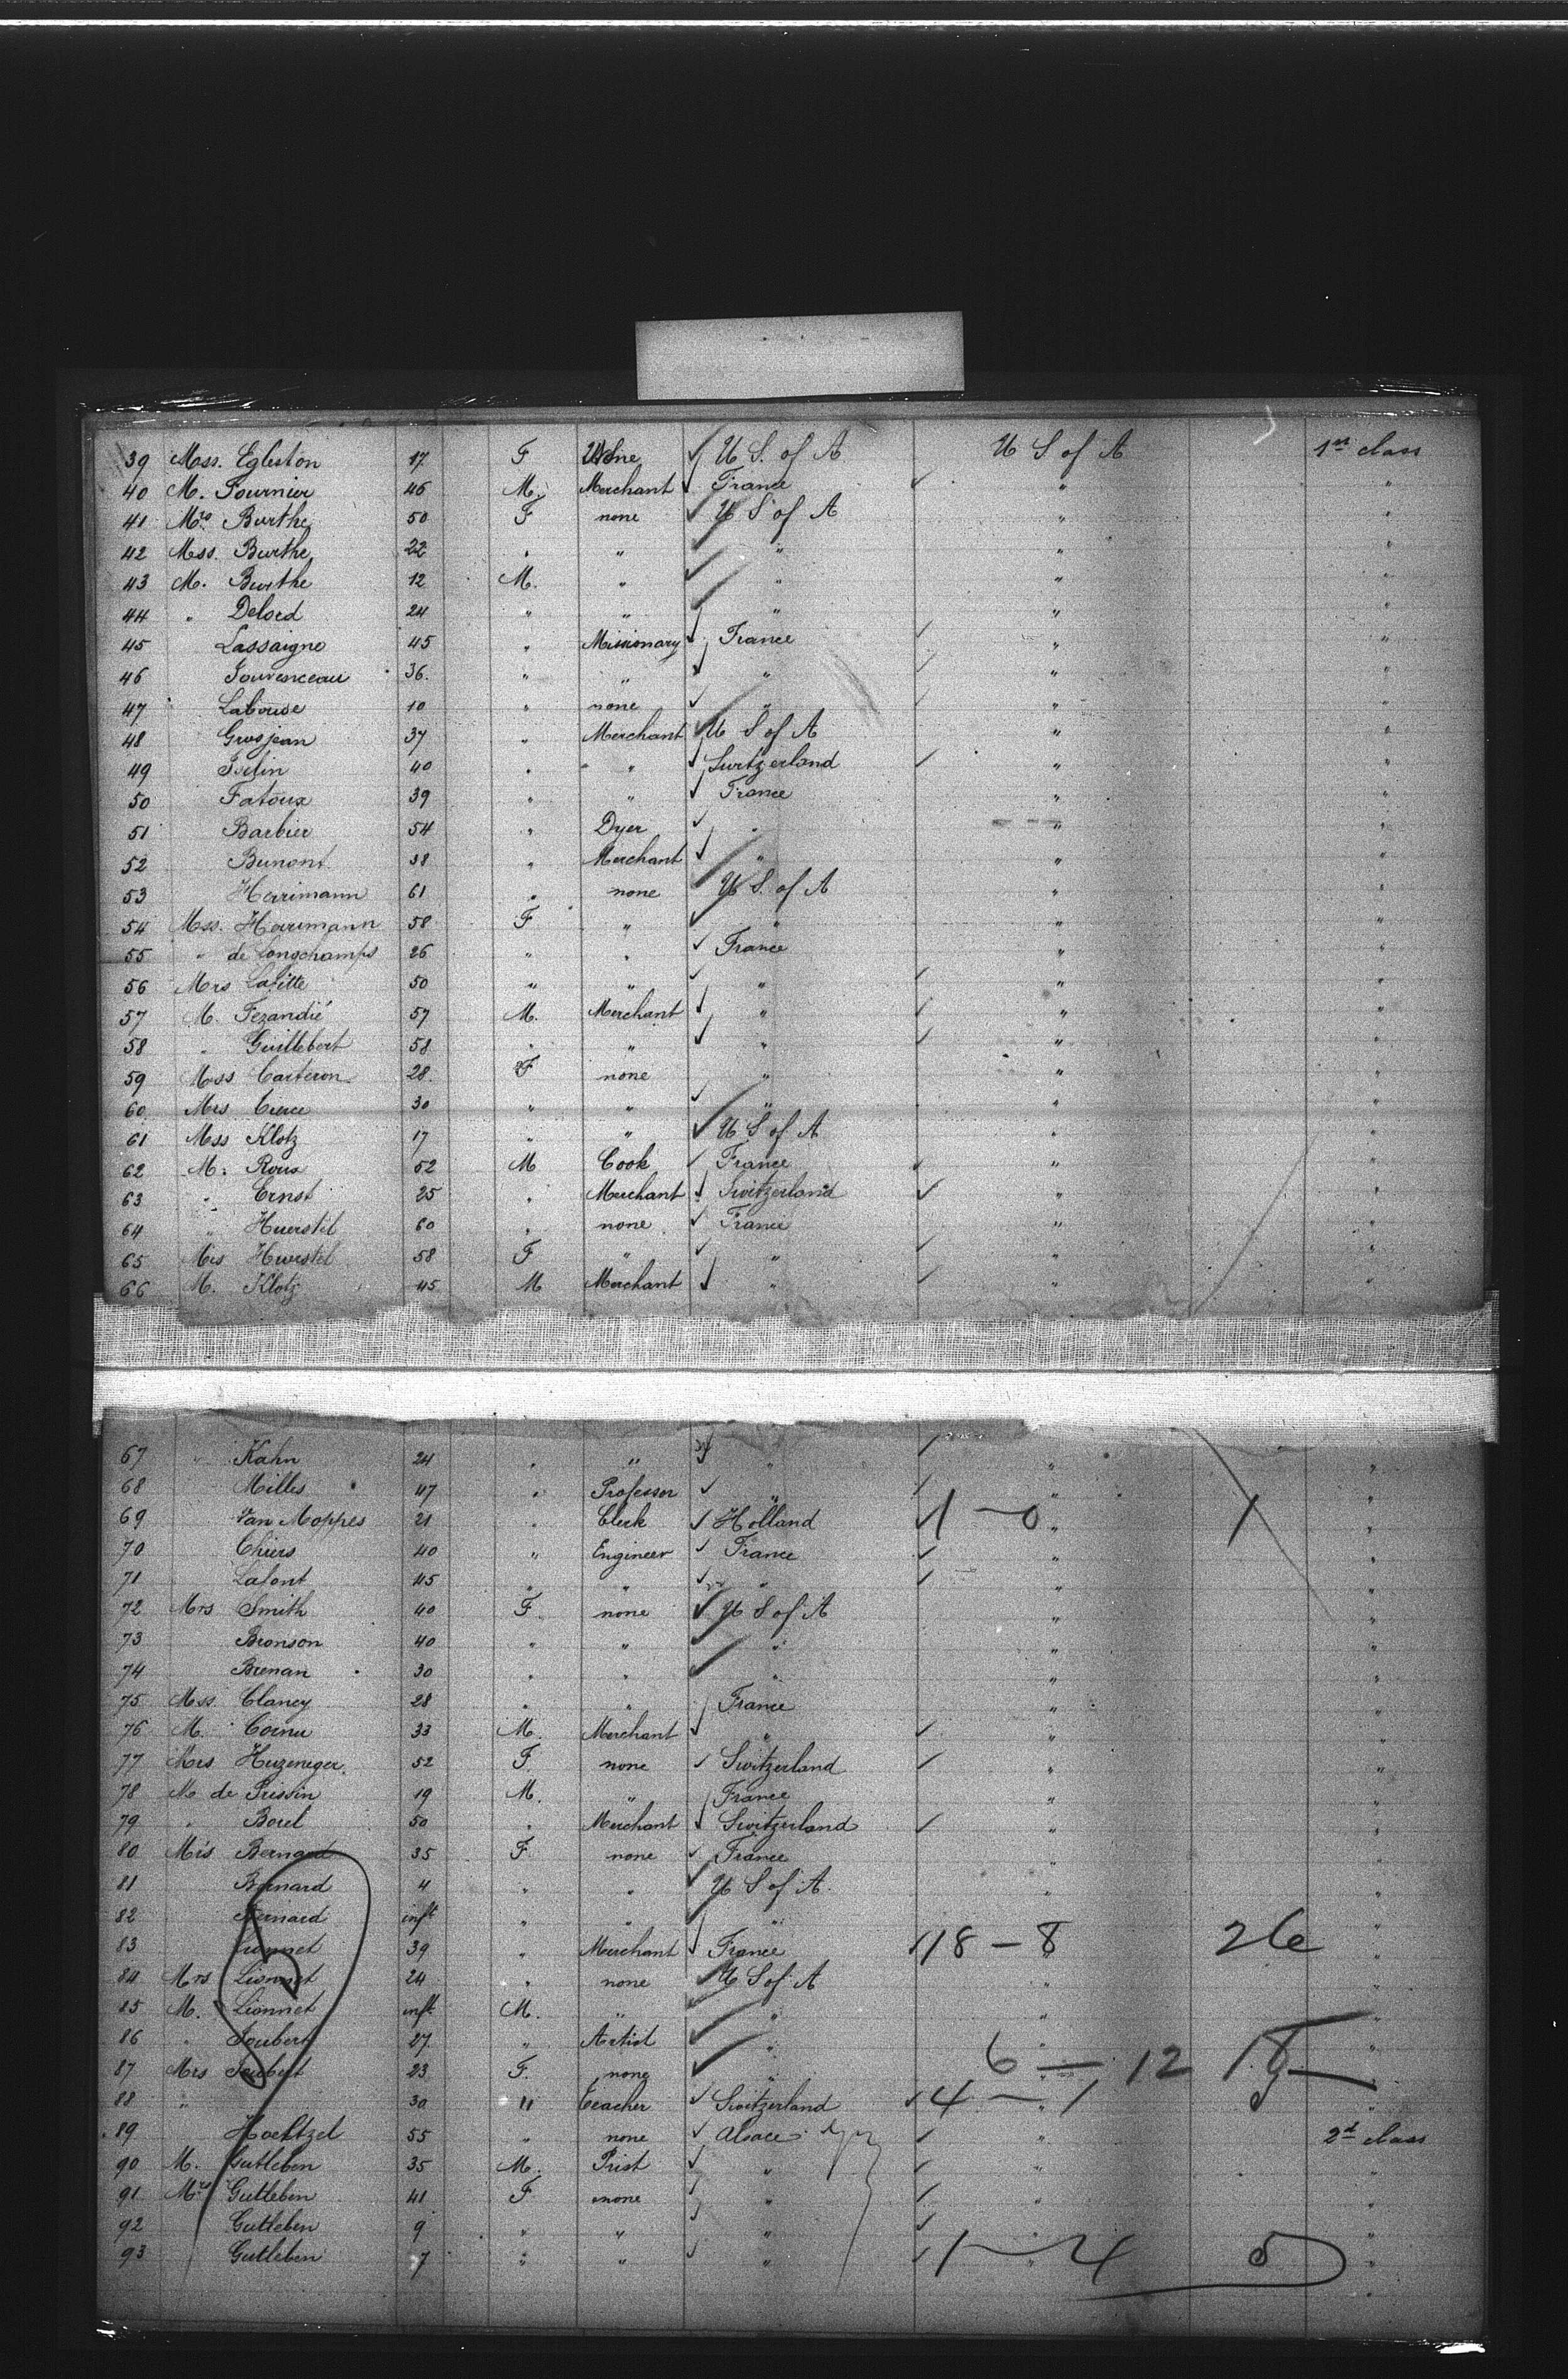 39 Mss. Egleston 17 F None U S. of A U S of A 1st class
40 M. Fournier 46 M. Merchant France " "
41 Mrs Burthe 50 F none U S of A " "
42 Mss. Burthe 22 " " " " "
43 M. Burthe 12 M. " " " "
44 " Delord 24 " " " " "
45 Lassaigne 45 " Missionary France " "
46 Jouvenceau 36. " " " " "
47 Labouse 10 " none " " "
48 Grosjean 37 " Merchant U S of A " "
49 Iselin 40 " " Switzerland " "
50 Fatoux 39 " " France " "
51 Barbier 54 " Dyer " " "
52 Bunont 38 " Merchant " " "
53 Herrimann 61 " none U S. of A " "
54 Mss. Herrimann 58 F " " " "
55 " de Longchamps 26 " " France " "
56 Mrs Lafitte 50 " " " " "
57 M. Fezandié 57 M. Merchant " " "
58 " Guillebert 58 " " " " "
59 Mss Carteron 28. F none " " "
60 Mrs Cierce 30 " " " " "
61 Mss Klotz 17 " " U S of A " "
62 M. Roux 52 M Cook France " "
63 " Ernst 25 " Merchant Switzerland " "
64 " Huerstel 60 " none France " "
65 Mrs Huerstel 58 F " " " "
66 M. Klotz 45 M Merchant " " "
67 " Kahn 24 " " " " "
68 Milles 47 " Professor " " "
69 Van Moppes 21 " Clerk Holland 1 — 0 " 1 "
70 Chiers 40 " Engineer France " "
71 Lafont 45 " " " " "
72 Mrs Smith 40 F. none U S of A " "
73 Bronson 40 " " " " "
74 Brenan 30 " " " " "
75 Mss Clancy 28 " " France " "
76 M. Cornu 33 M. Merchant " " "
77 Mrs Huzeneger 52 F. none Switzerland " "
78 M de Prissin 19 M. " France " "
79 " Borel 50 " Merchant Switzerland " "
80 Mrs Bernard 35 F none France " "
81 Bernard 4 " " U S of A " "
82 Bernard inft " " " " "
83 Lionnet 39 " Merchant France 18 — 8 " 26 "
84 Mrs Lionnet 24 " none U S of A " "
85 M. Lionnet inft M. " " " "
86 " Joubert 27 " Artist " " "
87 Mrs Joubert 23 F. none " 6 — 12 18 "
88 " 30 " Teacher Switzerland 4 — 1 " "
89 Hoeltzel 55 " none Alsace " 2d class
90 M. Gutleben 35 M. Prist " " "
91 Mrs Gutleben 41 F none " " "
92 Gutleben 9 " " " " "
93 Gutleben 7 " " " 1 — 4 " 5 "